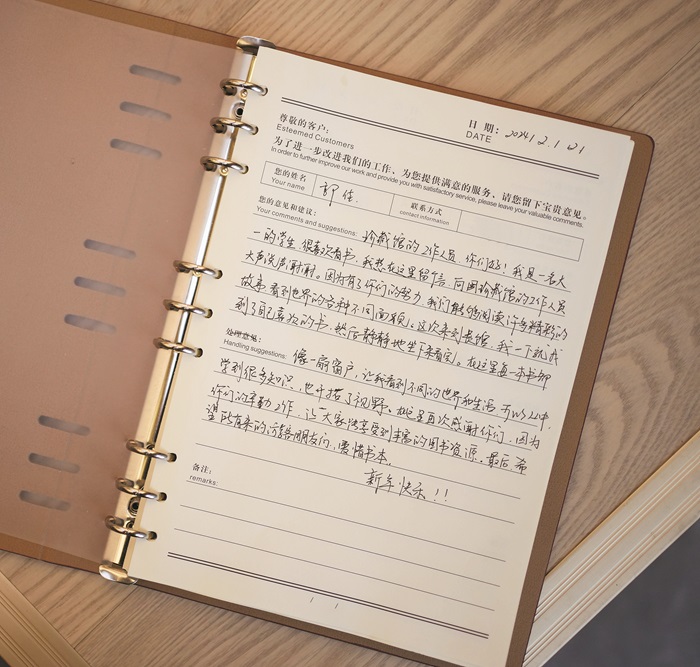 日 期: 2024.2.21
DATE
尊敬的客户:
Esteemed Customers
为了进一步改进我们的工作、为您提供满意的服务、请您留下宝贵意见。
In order to further improve our work and provide you with satisfactory service, please leave your valuable comments.
您的姓名
Your name
郭佳
联系方式
contact information
您的意见和建议:
Your comments and suggestions:
珍藏馆的工作人员 你们好! 我是一名大
一的学生,很喜欢看书,我想在这里留言,向图珍藏馆的工作人员
大声说声谢谢。因为有了你们的努力,我们能够阅读许多精彩的
故事,看到世界的各种不同面貌。这次来到长馆,我一下就找
到了自己喜欢的书,然后静静地坐下来看完。在这里每一本书都
处理意见:
Handling suggestions:
像一扇窗户,让我看到不同的世界和生活
学到很多知识,也开拓了视野。在这里再次感谢你们,因为
你们的辛勤工作,让大家享受到丰富的图书资源。最后,希
望所有来的读者朋友们,爱惜书本。
新年快乐!!
备注:
remarks: